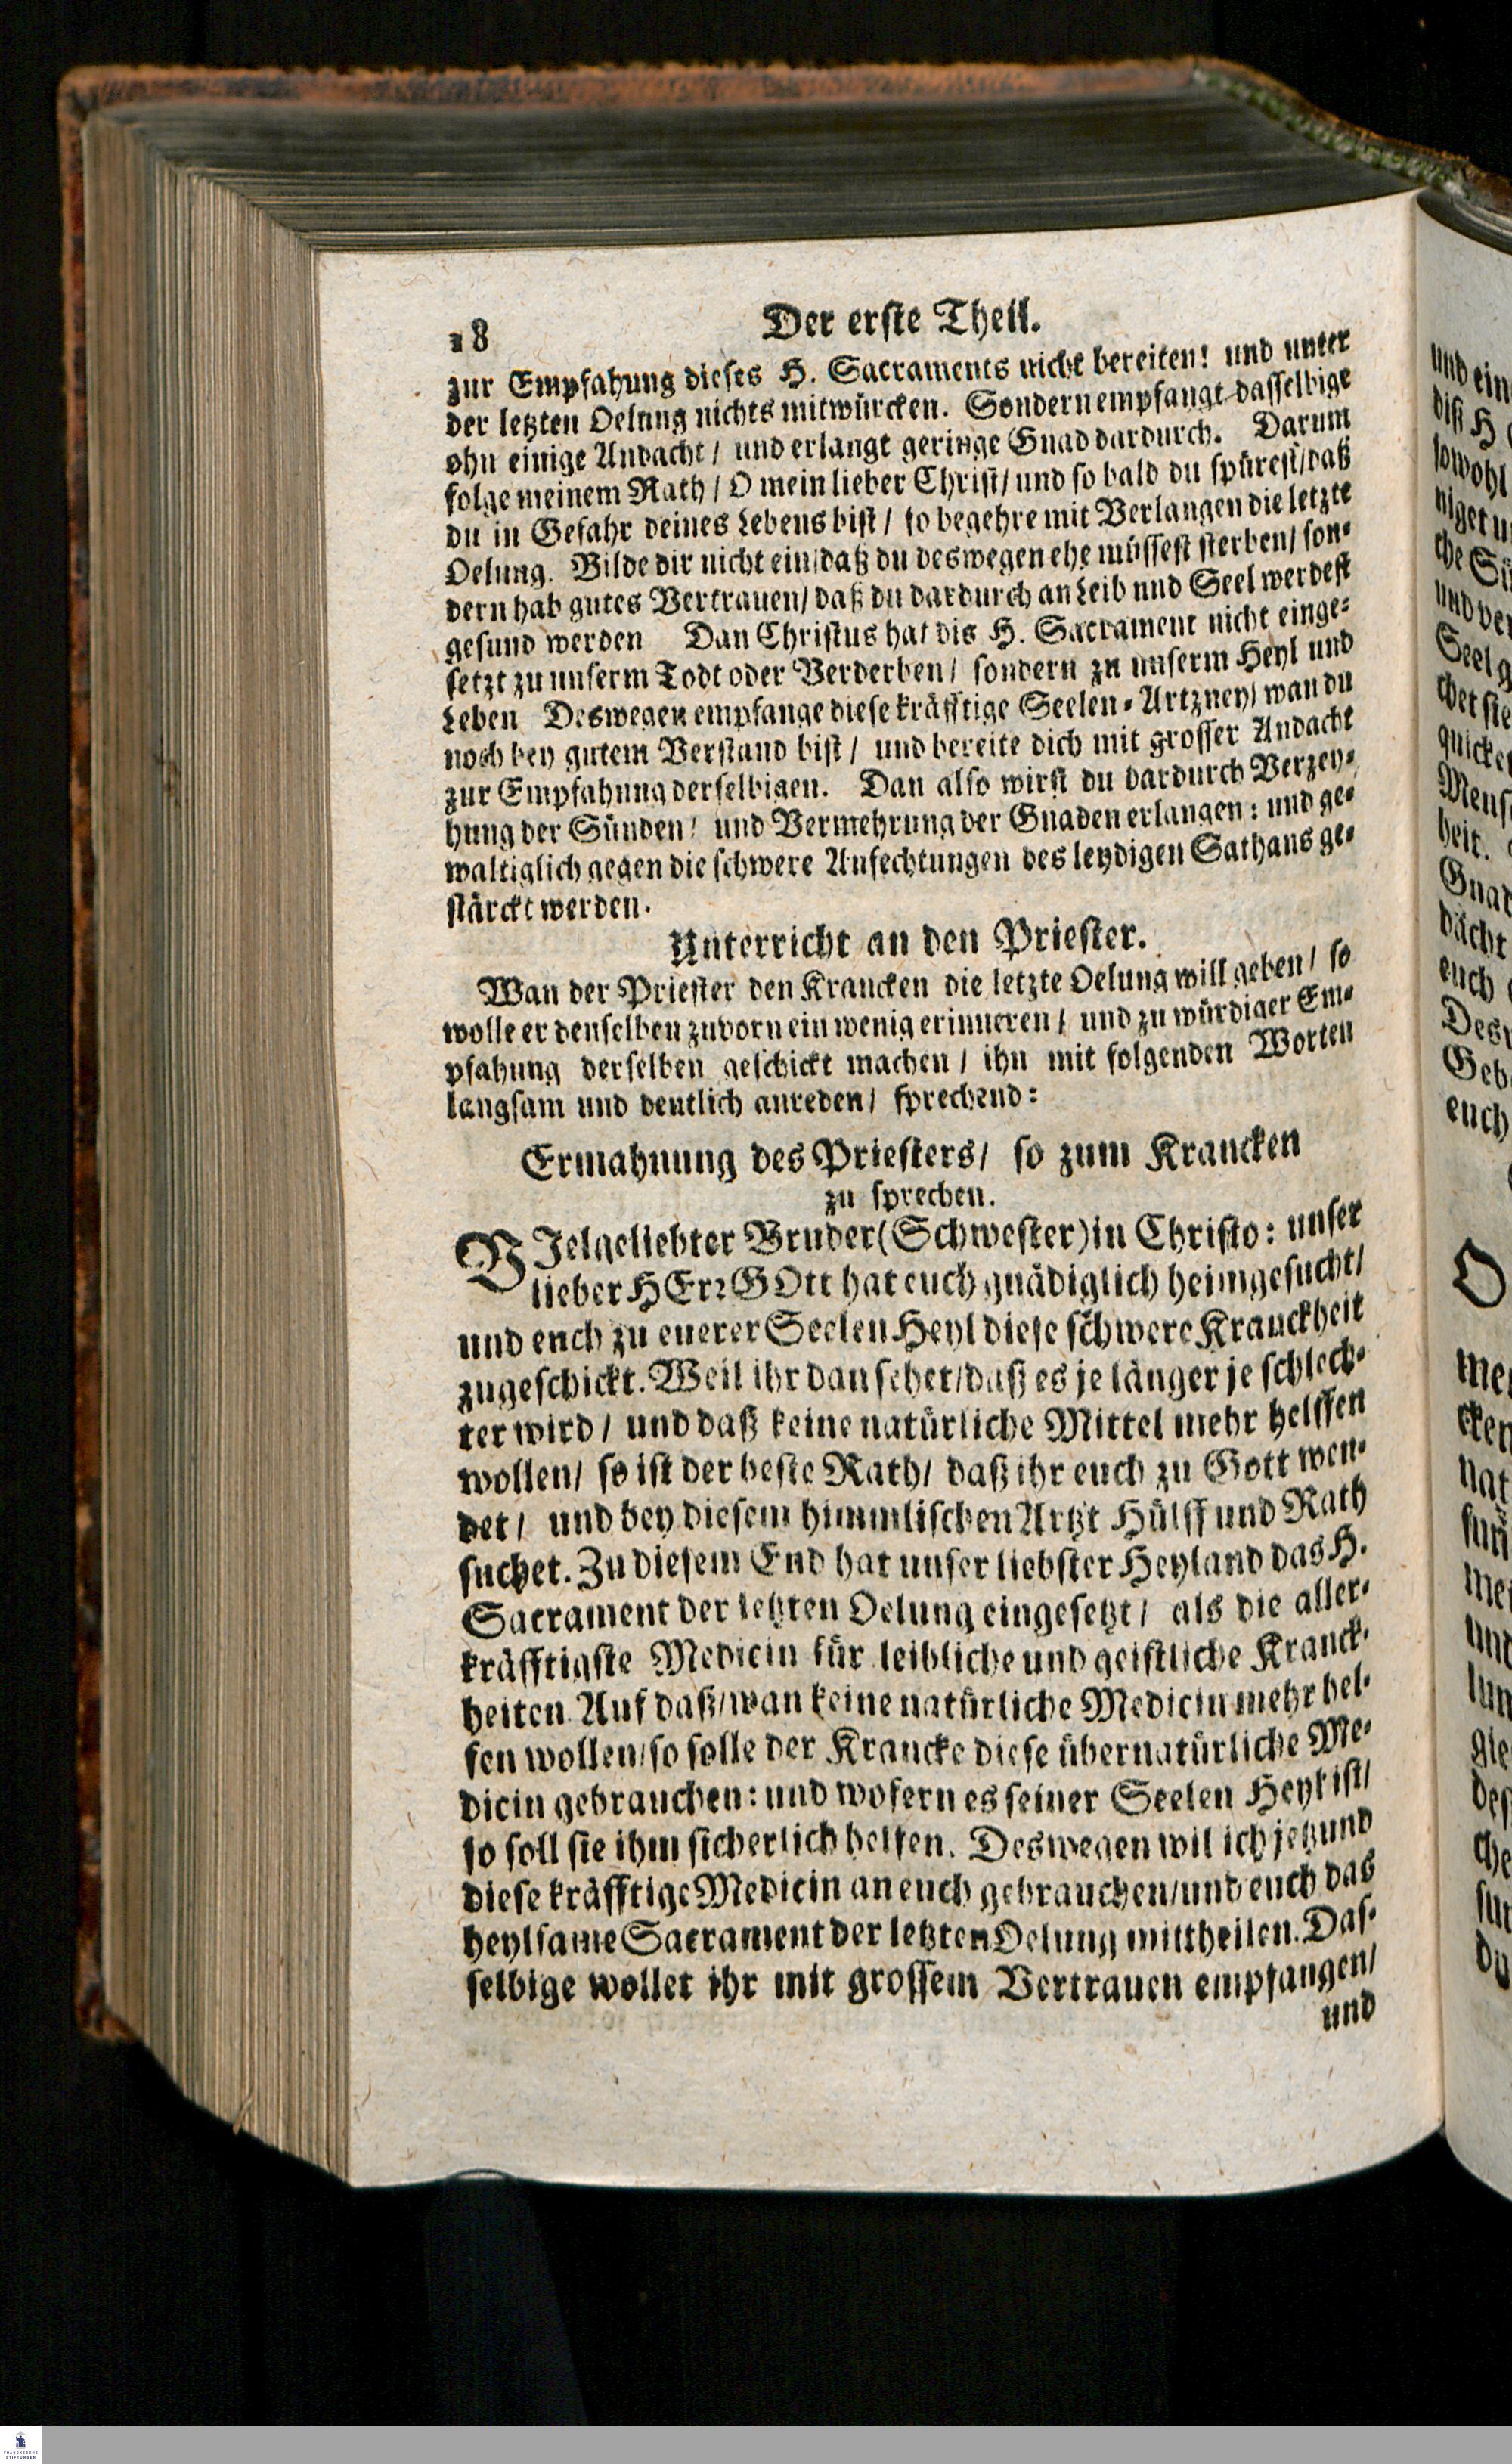 18 Der erste Theil.
zur Empfahung dieses H. Sacraments nicht bereiten! und unter
der letzten Oelung nichts mitwürcken. Sondern empfangt dasselbige
ohn einige Andacht / und erlangt geringe Gnad dardurch. Darum
folge meinem Rath / O mein lieber Christ / und so bald du spürest / daß
du in Gefahr deines Lebens bist / so begehre mit Verlangen die letzte
Oelung. Bilde dir nicht ein / daß du deswegen ehe müssest sterben / son-
dern hab gutes Vertrauen / daß du dardurch an Leib und Seel werdest
gesund werden Dan Christus hat dis H. Sacrament nicht einge-
setzt zu unserm Todt oder Verderben / sondern zu unserm Heyl und
Leben Deswegen empfange diese kräfftige Seelen-Artzney / wan du
noch bey gutem Verstand bist / und bereite dich mit grosser Andacht
zur Empfahung derselbigen. Dan also wirst du dardurch Verzey-
hung der Sünden / und Vermehrung der Gnaden erlangen: und ge-
waltiglich gegen die schwere Anfechtungen des leydigen Sathans ge-
stärckt werden.
Unterricht an den Priester.
Wan der Priester den Krancken die letzte Oelung will geben / so
wolle er denselben zuvorn ein wenig erinneren / und zu würdiger Em-
pfahung derselben geschickt machen / ihn mit folgenden Worten
langsam und deutlich anreden / sprechend:
Ermahnung des Priesters / so zum Krancken
zu sprechen.
VIelgeliebter Bruder (Schwester) in Christo: unser
lieber HErr GOtt hat euch gnädiglich heimgesucht /
und euch zu euerer Seelen Heyl diese schwere Kranckheit
zugeschickt. Weil ihr dan sehet / daß es je länger je schlech-
ter wird / und daß keine natürliche Mittel mehr helffen
wollen / so ist der beste Rath / daß ihr euch zu Gott wen-
det / und bey diesem himmlischen Artzt Hülff und Rath
suchet. Zu diesem End hat unser liebster Heyland das H.
Sacrament der letzten Oelung eingesetzt / als die aller-
kräfftigste Medicin für leibliche und geistliche Kranck-
heiten. Auf daß / wan keine natürliche Medicin mehr hel-
fen wollen / so solle der Krancke diese übernatürliche Me-
dicin gebrauchen: und wofern es seiner Seelen Heyl ist /
so soll sie ihm sicherlich helfen. Deswegen wil ich jetzund
diese kräfftige Medicin an euch gebrauchen / und euch das
heylsame Sacrament der letzten Oelung mittheilen. Das-
selbige wollet ihr mit grossem Vertrauen empfangen /
und